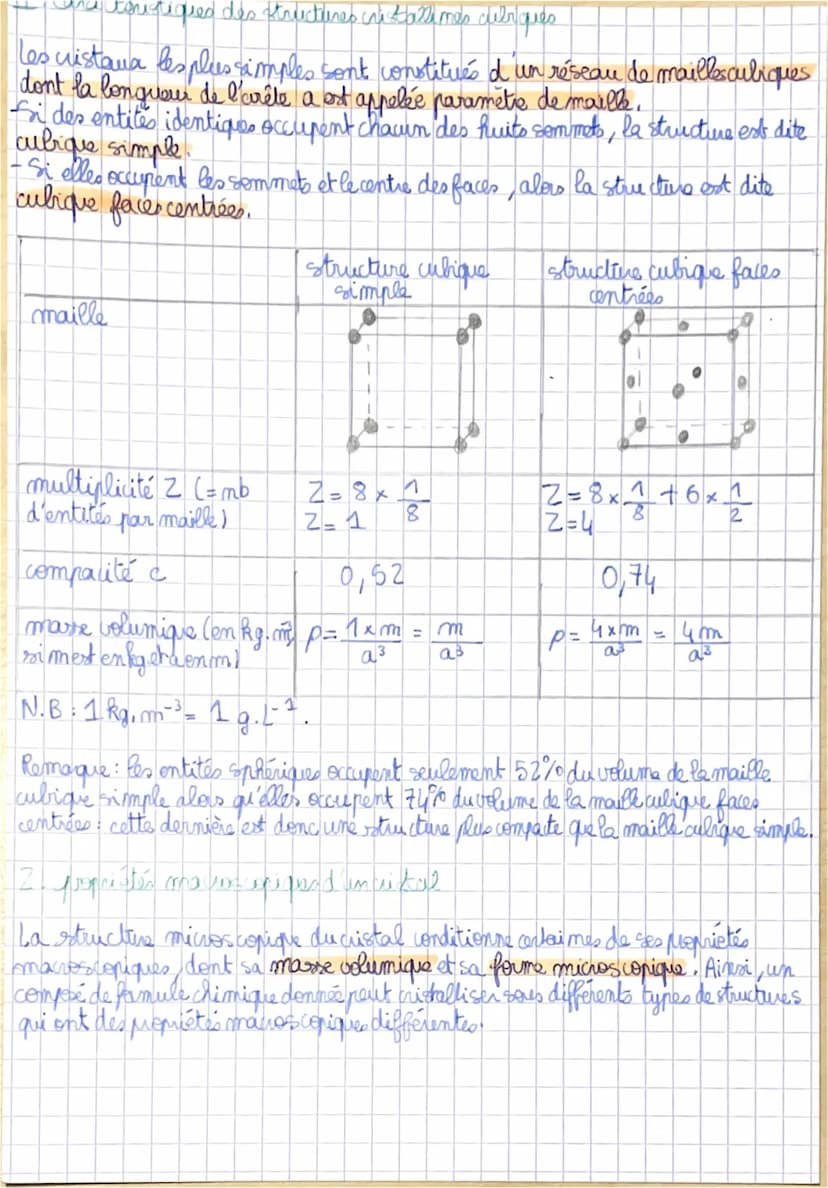 caractéristiques des structures cristallines cubiques
Les cristaux les plus simples sont constitués d'un réseau de mailles cubiques
dont la longueur de l'arête a est appelée paramètre de maille.
-Si des entités identiques occupent chacun des huits sommets, la structure est dite
cubique simple.
-Si elles occupent les sommets et le centre des faces, alors la structure est dite
cubique faces centrées.
structure cubique simple
structure cubique faces centrées
maille
multiplicité Z (=nb d'entités par maille)
Z = 8 × 1/8
Z = 1
Z = 8 × 1/8 + 6 × 1/2
Z = 4
compacité c
0,52
0,74
masse volumique (en kg.m³ si m est en kg et a en m)
ρ = 1×m/a³ = m/a³
ρ = 4×m/a³ = 4m/a³
N.B : 1 kg.m⁻³ = 1 g.L⁻¹.
Remarque : les entités sphériques occupent seulement 52% du volume de la maille
cubique simple alors qu'elles occupent 74% du volume de la maille cubique faces
centrées : cette dernière est donc une structure plus compacte que la maille cubique simple.
2. propriétés macroscopiques d'un cristal
La structure microscopique du cristal conditionne certaines de ses propriétés
macroscopiques, dont sa masse volumique et sa forme microscopique. Ainsi, un
composé de formule chimique donnée peut cristalliser sous différents types de structures
qui ont des propriétés macroscopiques différentes.